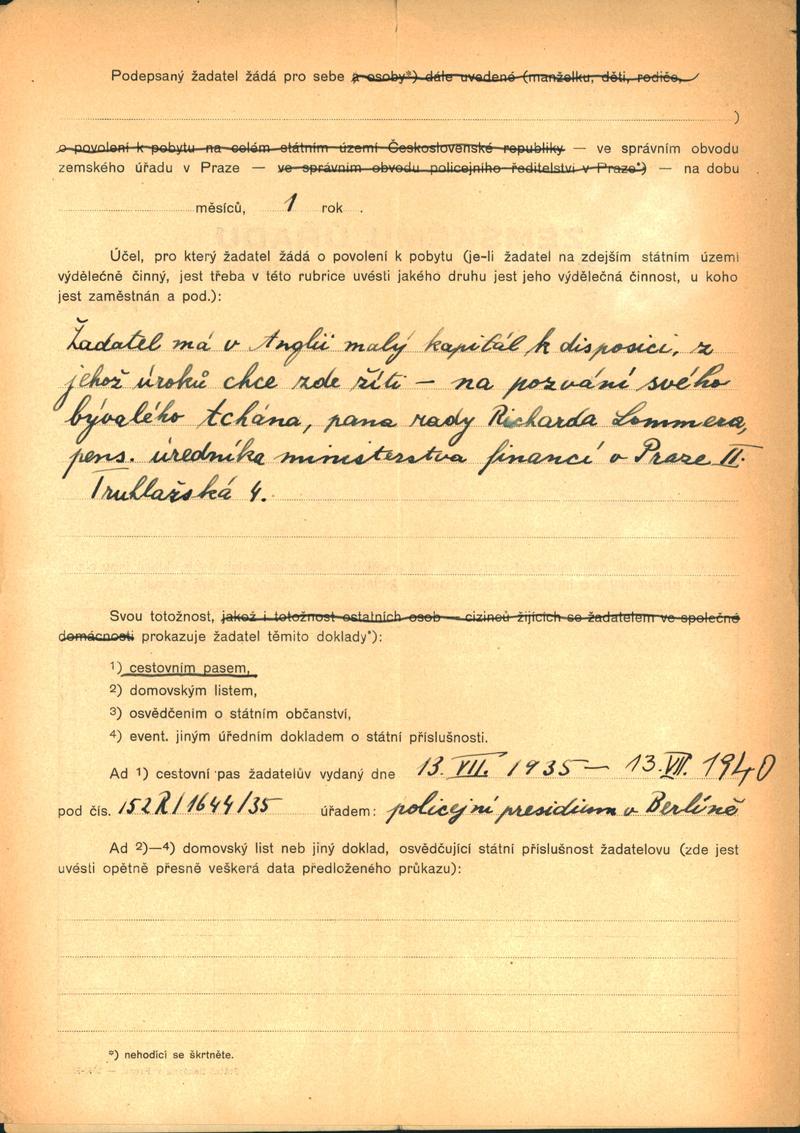 Podepsaný žadatel žádá pro sebe a osoby*) dále uvedené (manželku, děti, rodiče,
)
o povolení k pobytu na celém státním území Československé republiky — ve správním obvodu
zemského úřadu v Praze — ve správním obvodu policejního ředitelství v Praze*) — na dobu
měsíců, 1 rok .
Účel, pro který žadatel žádá o povolení k pobytu (je-li žadatel na zdejším státním území
výdělečně činný, jest třeba v této rubrice uvésti jakého druhu jest jeho výdělečná činnost, u koho
jest zaměstnán a pod.):
Žadatel má v Anglii malý kapitál k disposici, z
jehož úroků chce zde žíti — na pozvání svého
bývalého tchána, pana rady Richarda Lommera,
pens. úředníka ministerstva financí v Praze II.
Truhlařská 4.
Svou totožnost, jakož i totožnost ostatních osob — cizinců žijících se žadatelem ve společné
domácnosti prokazuje žadatel těmito doklady*):
1) cestovním pasem,
2) domovským listem,
3) osvědčením o státním občanství,
4) event. jiným úředním dokladem o státní příslušnosti.
Ad 1) cestovní pas žadatelův vydaný dne 13. VII. 1935 — 13. VII. 1940
pod čís. 152R/1644/35 úřadem: policejní presidium v Berlíně
Ad 2)—4) domovský list neb jiný doklad, osvědčující státní příslušnost žadatelovu (zde jest
uvésti opětně přesně veškerá data předloženého průkazu):
*) nehodící se škrtněte.